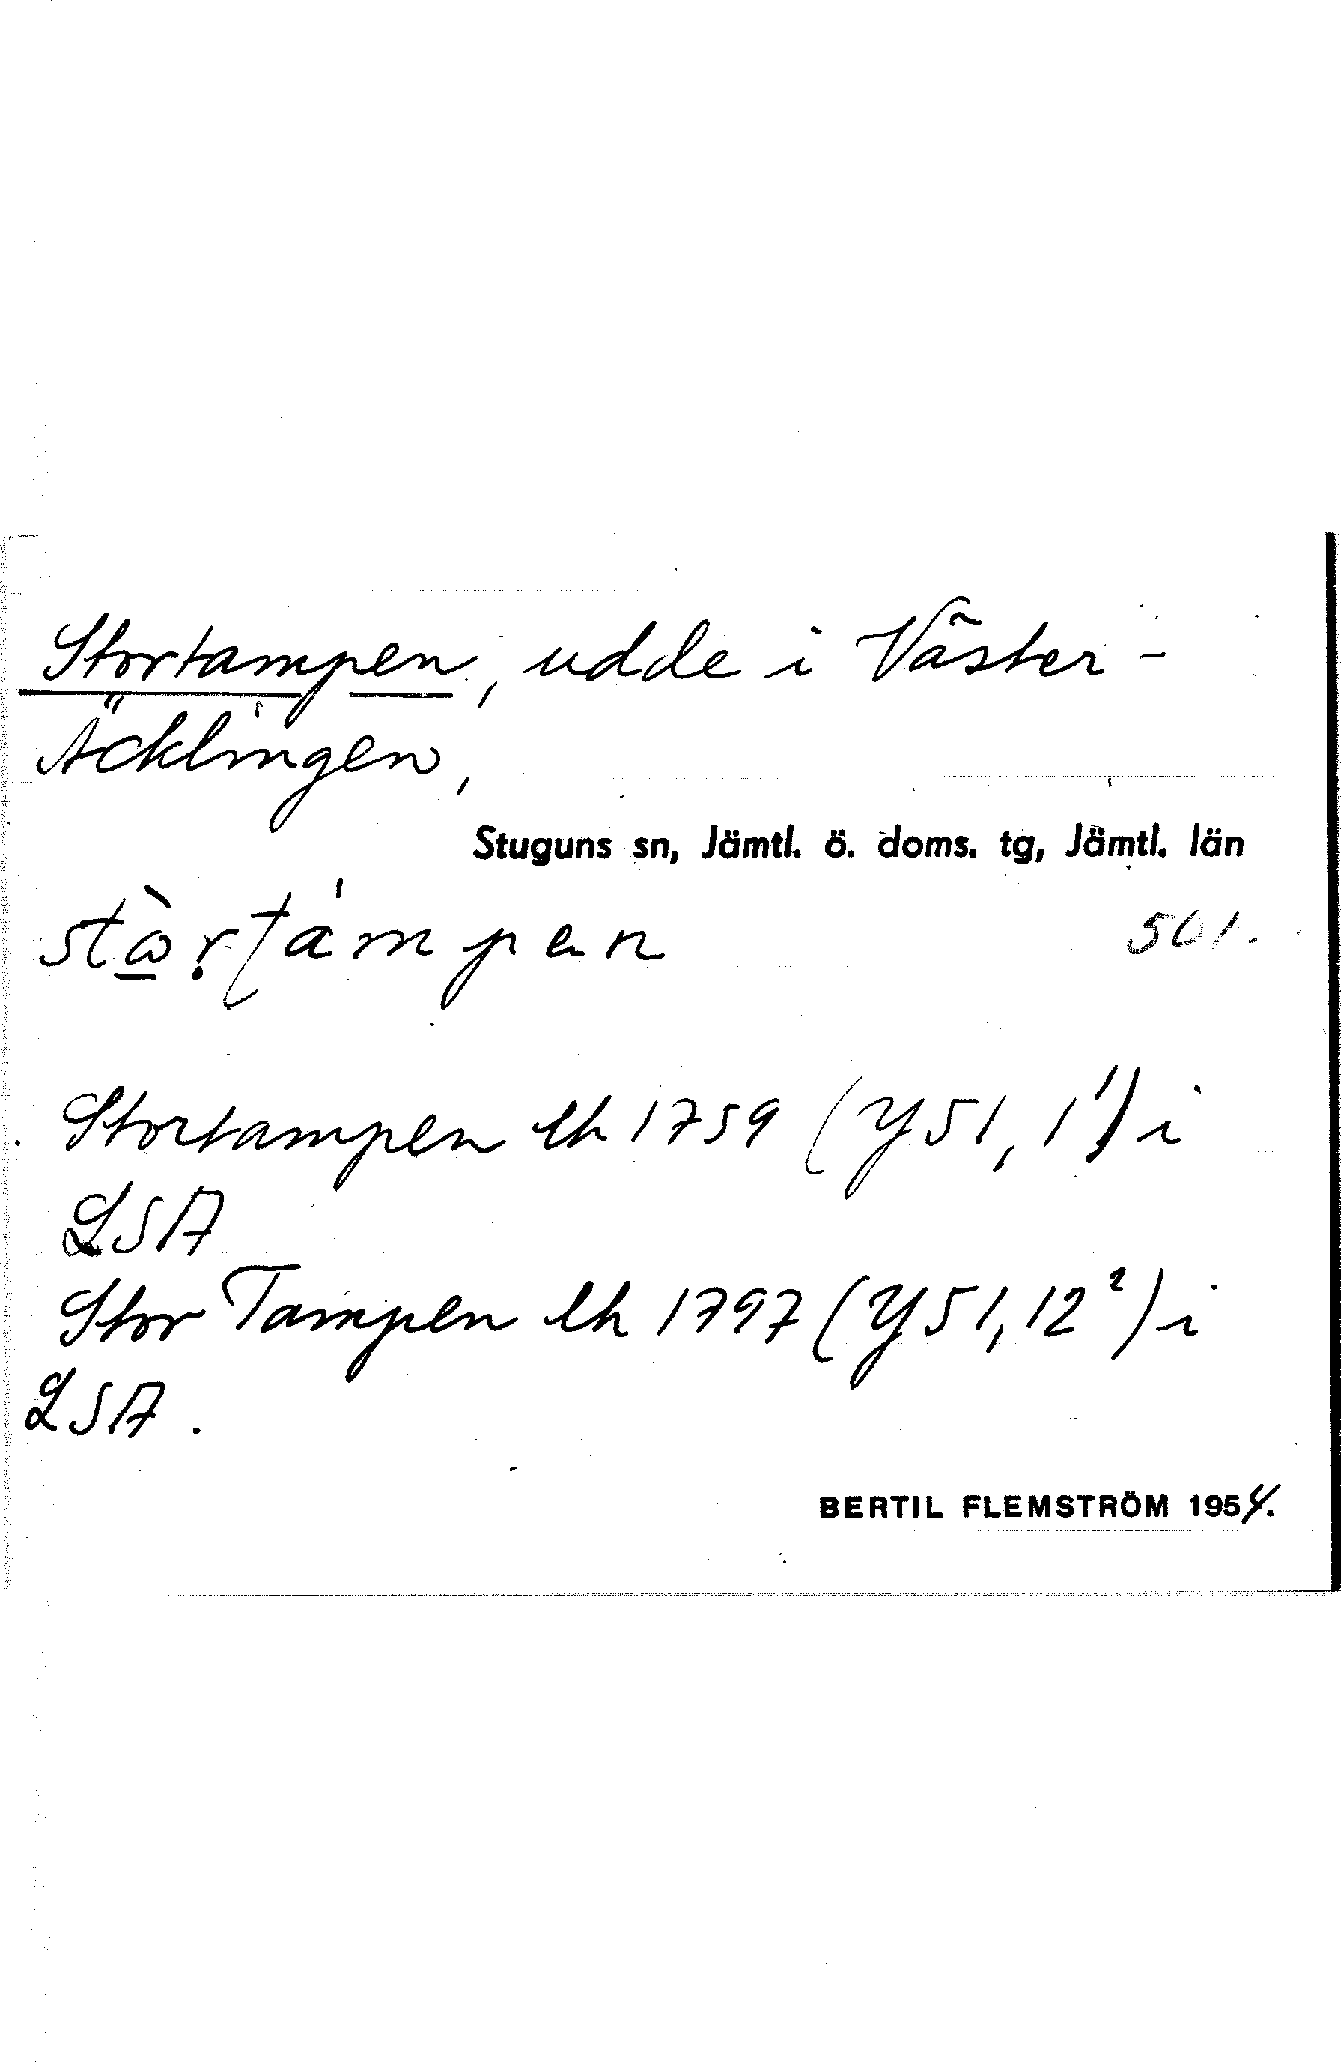 Stortampen, udde i Väster-
Äcklingen,
Stuguns sn, Jämtl. ö. doms. tg, Jämtl. län
501.
Stortampen lh 1759 (Y51, 1¹) i
LSA
Stor Tampen lh 1797 (Y51, 12²) i
LSA.
BERTIL FLEMSTRÖM 1954.